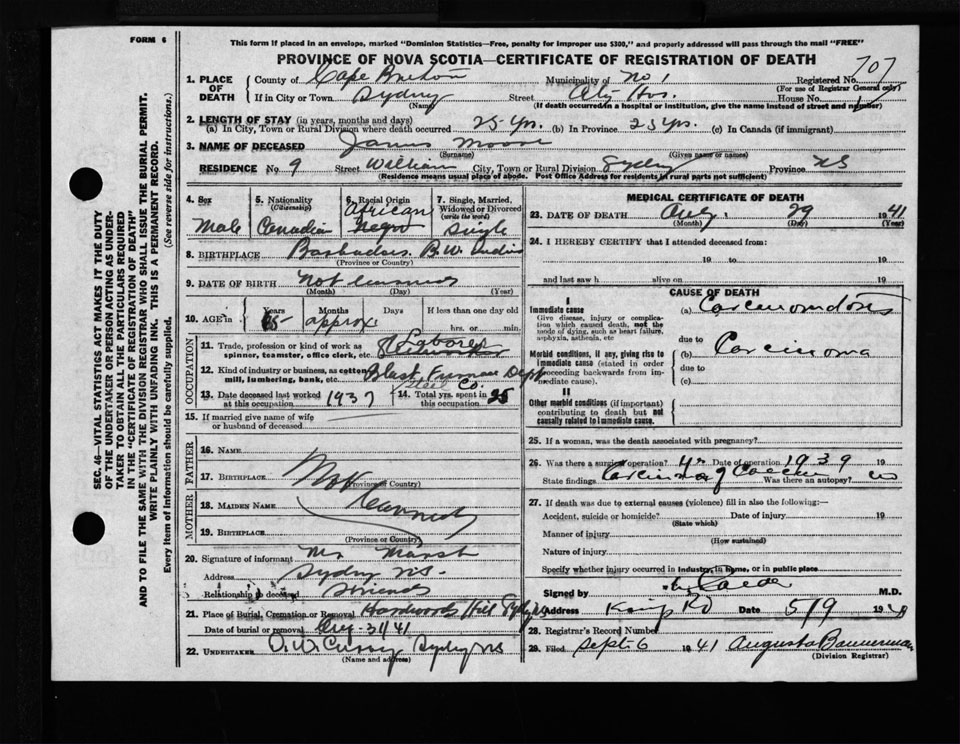 FORM 6
This form if placed in an envelope, marked "Dominion Statistics—Free, penalty for improper use $300," and properly addressed will pass through the mail "FREE"
PROVINCE OF NOVA SCOTIA—CERTIFICATE OF REGISTRATION OF DEATH
SEC. 46—VITAL STATISTICS ACT MAKES IT THE DUTY
OF THE UNDERTAKER OR PERSON ACTING AS UNDER-
TAKER TO OBTAIN ALL THE PARTICULARS REQUIRED
IN THE "CERTIFICATE OF REGISTRATION OF DEATH"
AND TO FILE THE SAME WITH THE DIVISION REGISTRAR WHO SHALL ISSUE THE BURIAL PERMIT.
WRITE PLAINLY WITH UNFADING INK. THIS IS A PERMANENT RECORD.
Every item of information should be carefully supplied. (See reverse side for instructions.)
1. PLACE OF DEATH
County of Cape Breton Municipality of No 1 Registered No. 707
(For use of Registrar General only)
If in City or Town Sydney Street City Hos. House No.
(Name) (If death occurred in a hospital or institution, give the name instead of street and number)
2. LENGTH OF STAY (in years, months and days)
(a) In City, Town or Rural Division where death occurred 25 yrs. (b) In Province 25 yrs. (c) In Canada (if immigrant)
3. NAME OF DECEASED James Moore
(Surname) (Given name or names)
RESIDENCE No. 9 Street William City, Town or Rural Division Sydney Province NS
(Residence means usual place of abode. Post Office Address for residents in rural parts not sufficient)
4. Sex Male
5. Nationality (Citizenship) Canadian
6. Racial Origin African Negro
7. Single, Married, Widowed or Divorced (write the word) Single
8. BIRTHPLACE Barbados. B.W. Indies
(Province or Country)
9. DATE OF BIRTH Not
(Month) (Day) (Year)
10. AGE in Years 65 Months approx. Days If less than one day old hrs. or min.
OCCUPATION
11. Trade, profession or kind of work as spinner, teamster, office clerk, etc. Laborer
12. Kind of industry or business, as cotton mill, lumbering, bank, etc. Blast Furnace Dept Steel Co.
13. Date deceased last worked at this occupation 1937
14. Total yrs. spent in this occupation 25
15. If married give name of wife or husband of deceased
FATHER
16. NAME
17. BIRTHPLACE Not
(Province or Country)
MOTHER
18. MAIDEN NAME
19. BIRTHPLACE
(Province or Country)
20. Signature of informant Mr Marsh
Address Sydney NS.
Relationship to deceased friends
21. Place of Burial, Cremation or Removal Hardwoods Hill Sydney NS
Date of burial or removal Aug-31/41
22. UNDERTAKER Curry Sydney NS
(Name and address)
MEDICAL CERTIFICATE OF DEATH
23. DATE OF DEATH Aug. 29 1941
(Month) (Day) (Year)
24. I HEREBY CERTIFY that I attended deceased from:
19 to 19
and last saw h alive on 19
CAUSE OF DEATH
I
Immediate cause
Give disease, injury or complication which caused death, not the mode of dying, such as heart failure, asphyxia, asthenia, etc
(a)
due to
Morbid conditions, if any, giving rise to immediate cause (stated in order proceeding backwards from immediate cause).
(b) Carcinoma
due to
(c)
II
Other morbid conditions (if important) contributing to death but not causally related to immediate cause.
25. If a woman, was the death associated with pregnancy?
26. Was there a surgical operation? Date of operation 1939 19
State findings Was there an autopsy? no
27. If death was due to external causes (violence) fill in also the following:—
Accident, suicide or homicide? Date of injury 19
(State which)
Manner of injury
(How sustained)
Nature of injury
Specify whether injury occurred in industry, in home, or in public place
Signed by M.D.
Address Kings Rd Date 5/9 19
28. Registrar's Record Number
29. Filed Sept 6 1941 Augusta Bannerman
(Division Registrar)